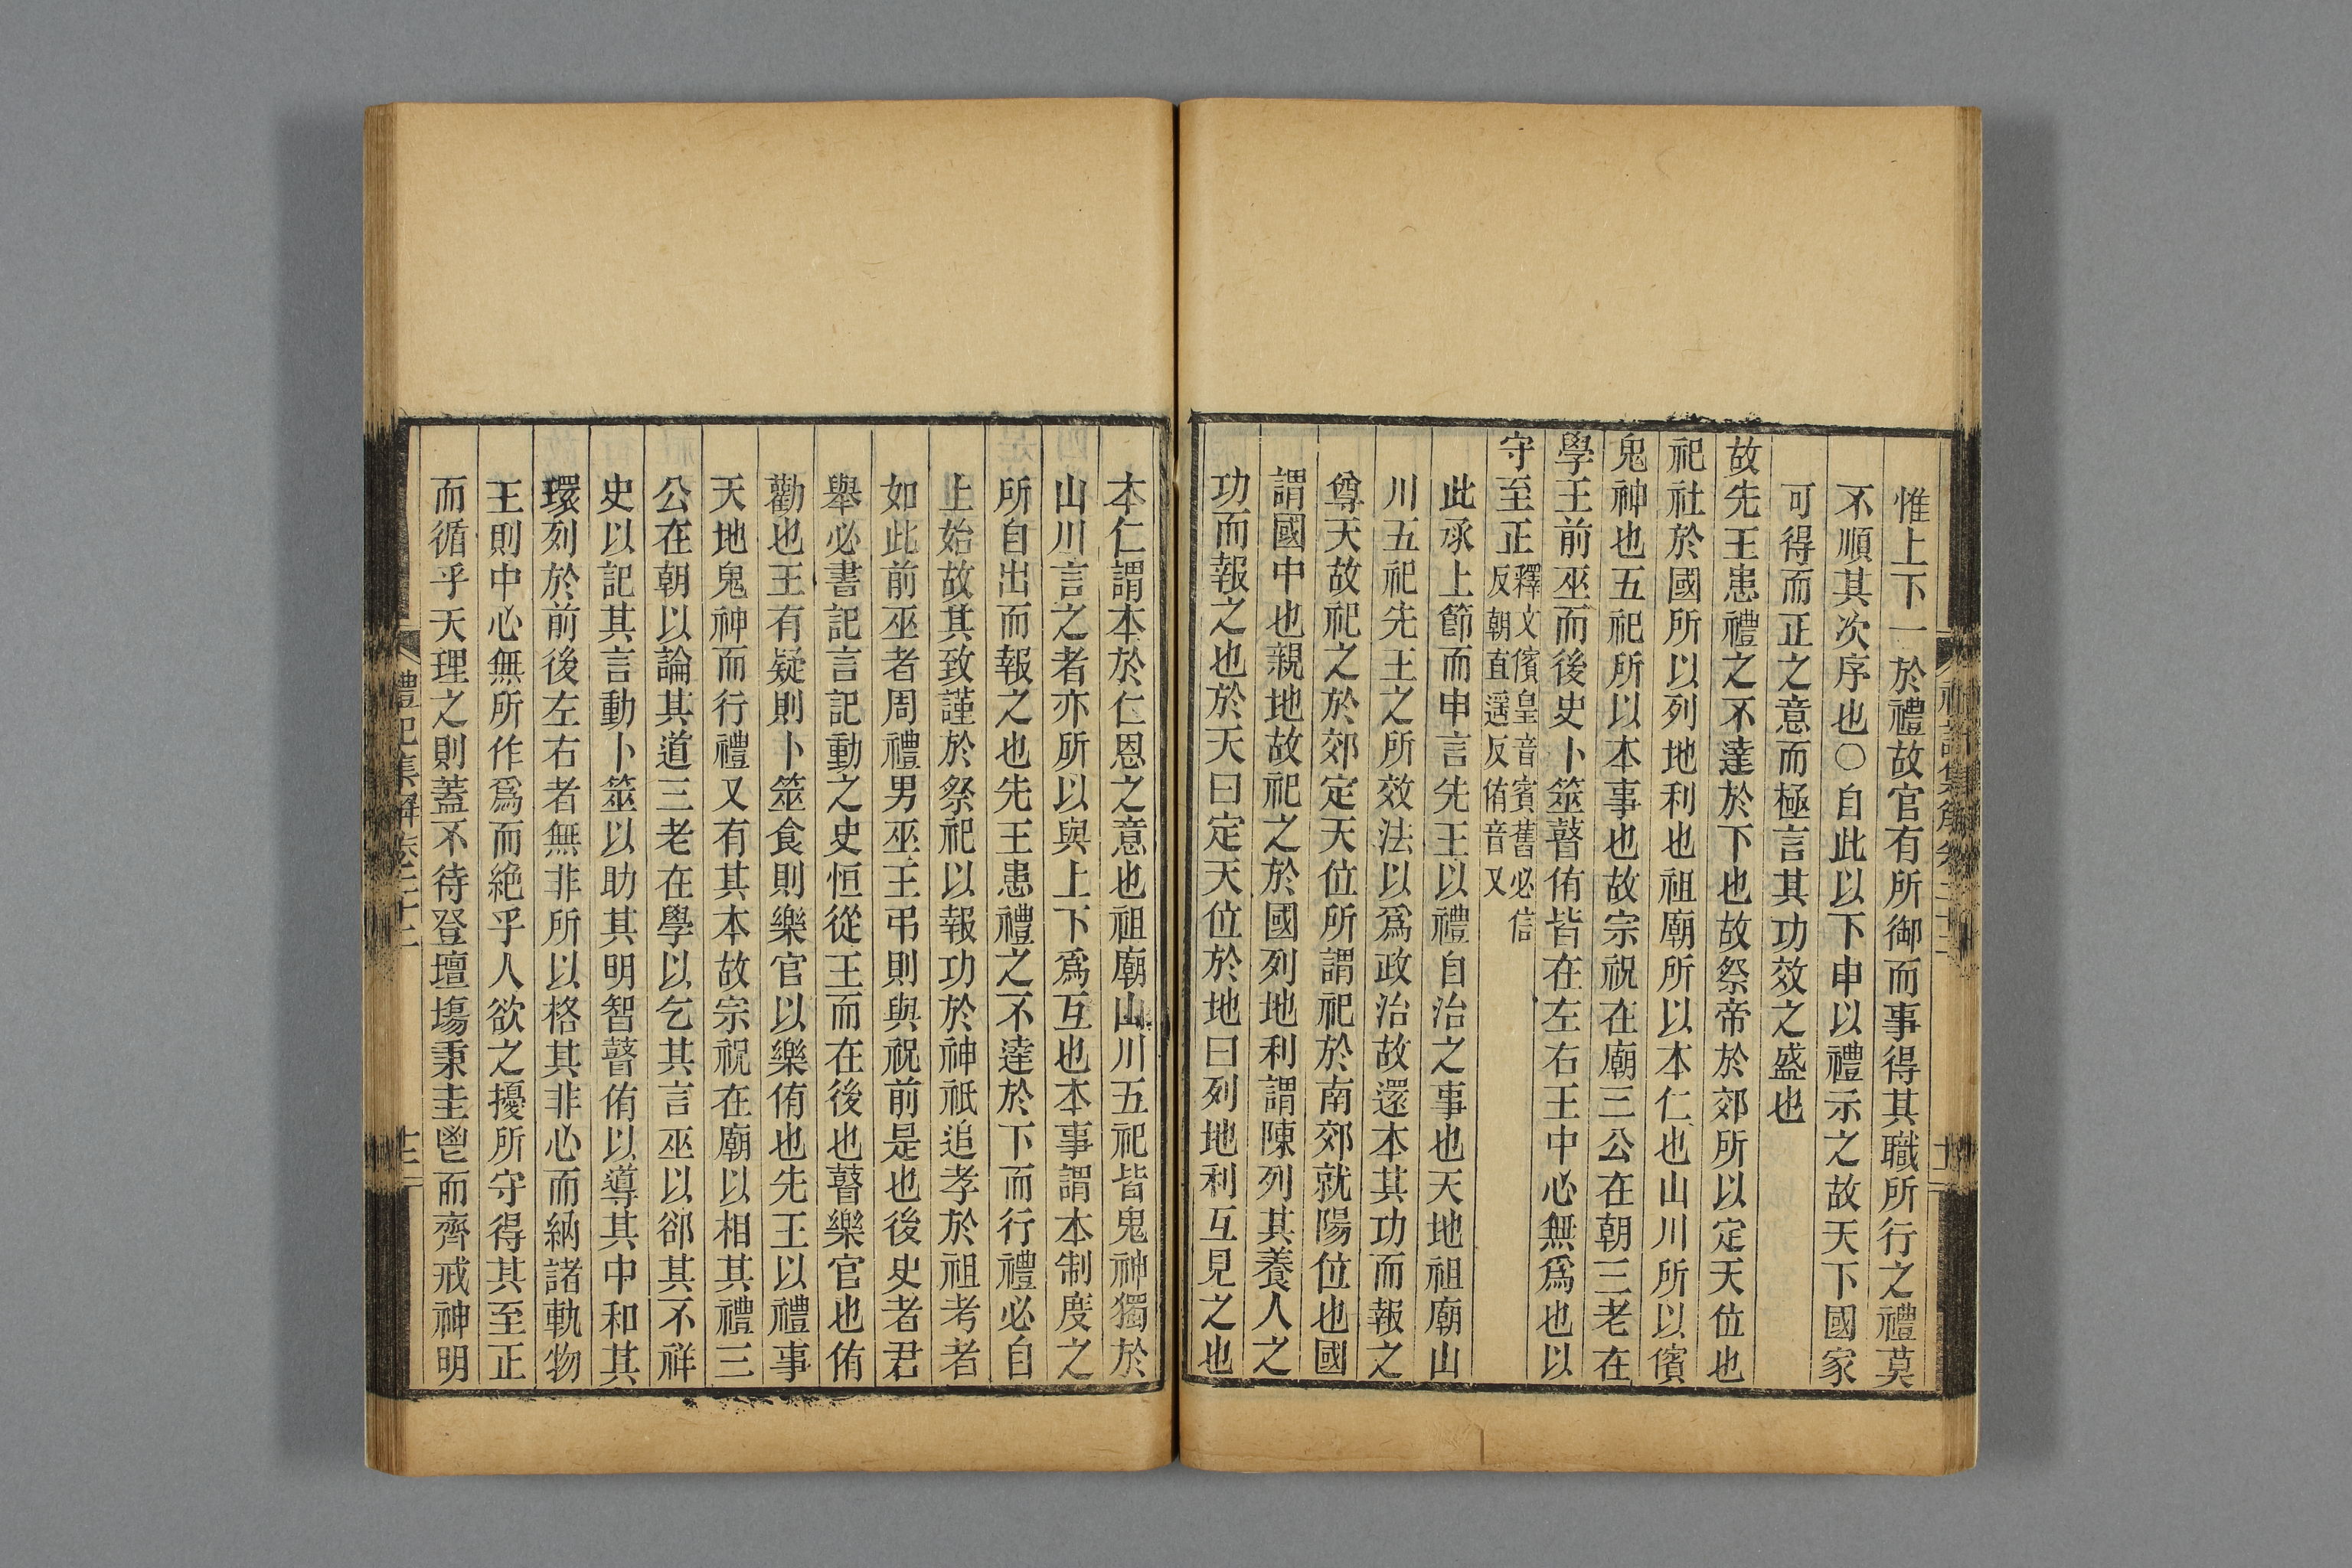 惟上下一於禮故官有所御而事得其職所行之禮莫
不順其次序也○自此以下申以禮示之故天下國家
可得而正之意而極言其功效之盛也
故先王患禮之不達於下也故祭帝於郊所以定天位也
祀社於國所以列地利也祖廟所以本仁也山川所以儐
鬼神也五祀所以本事也故宗祝在廟三公在朝三老在
學王前巫而後史卜筮瞽侑皆在左右王中心無爲也以
守至正釋文儐皇音賓舊必信
反朝直遥反侑音又
此承上節而申言先王以禮自治之事也天地祖廟山
川五祀先王之所效法以爲政治故還本其功而報之
尊天故祀之於郊定天位所謂祀於南郊就陽位也國
謂國中也親地故祀之於國列地利謂陳列其養人之
功而報之也於天曰定天位於地曰列地利互見之也
本仁謂本於仁恩之意也祖廟山川五祀皆鬼神獨於
山川言之者亦所以與上下爲互也本事謂本制度之
所自出而報之也先王患禮之不達於下而行禮必自
上始故其致謹於祭祀以報功於神祇追孝於祖考者
如此前巫者周禮男巫王弔則與祝前是也後史者君
舉必書記言記動之史恒從王而在後也瞽樂官也侑
勸也王有疑則卜筮食則樂官以樂侑也先王以禮事
天地鬼神而行禮又有其本故宗祝在廟以相其禮三
公在朝以論其道三老在學以乞其言巫以郤其不祥
史以記其言動卜筮以助其明智瞽侑以導其中和其
環列於前後左右者無非所以格其非心而納諸軌物
王則中心無所作爲而絶乎人欲之擾所守得其至正
而循乎天理之則蓋不待登壇場秉圭鬯而齊戒神明
禮記集解卷二十二